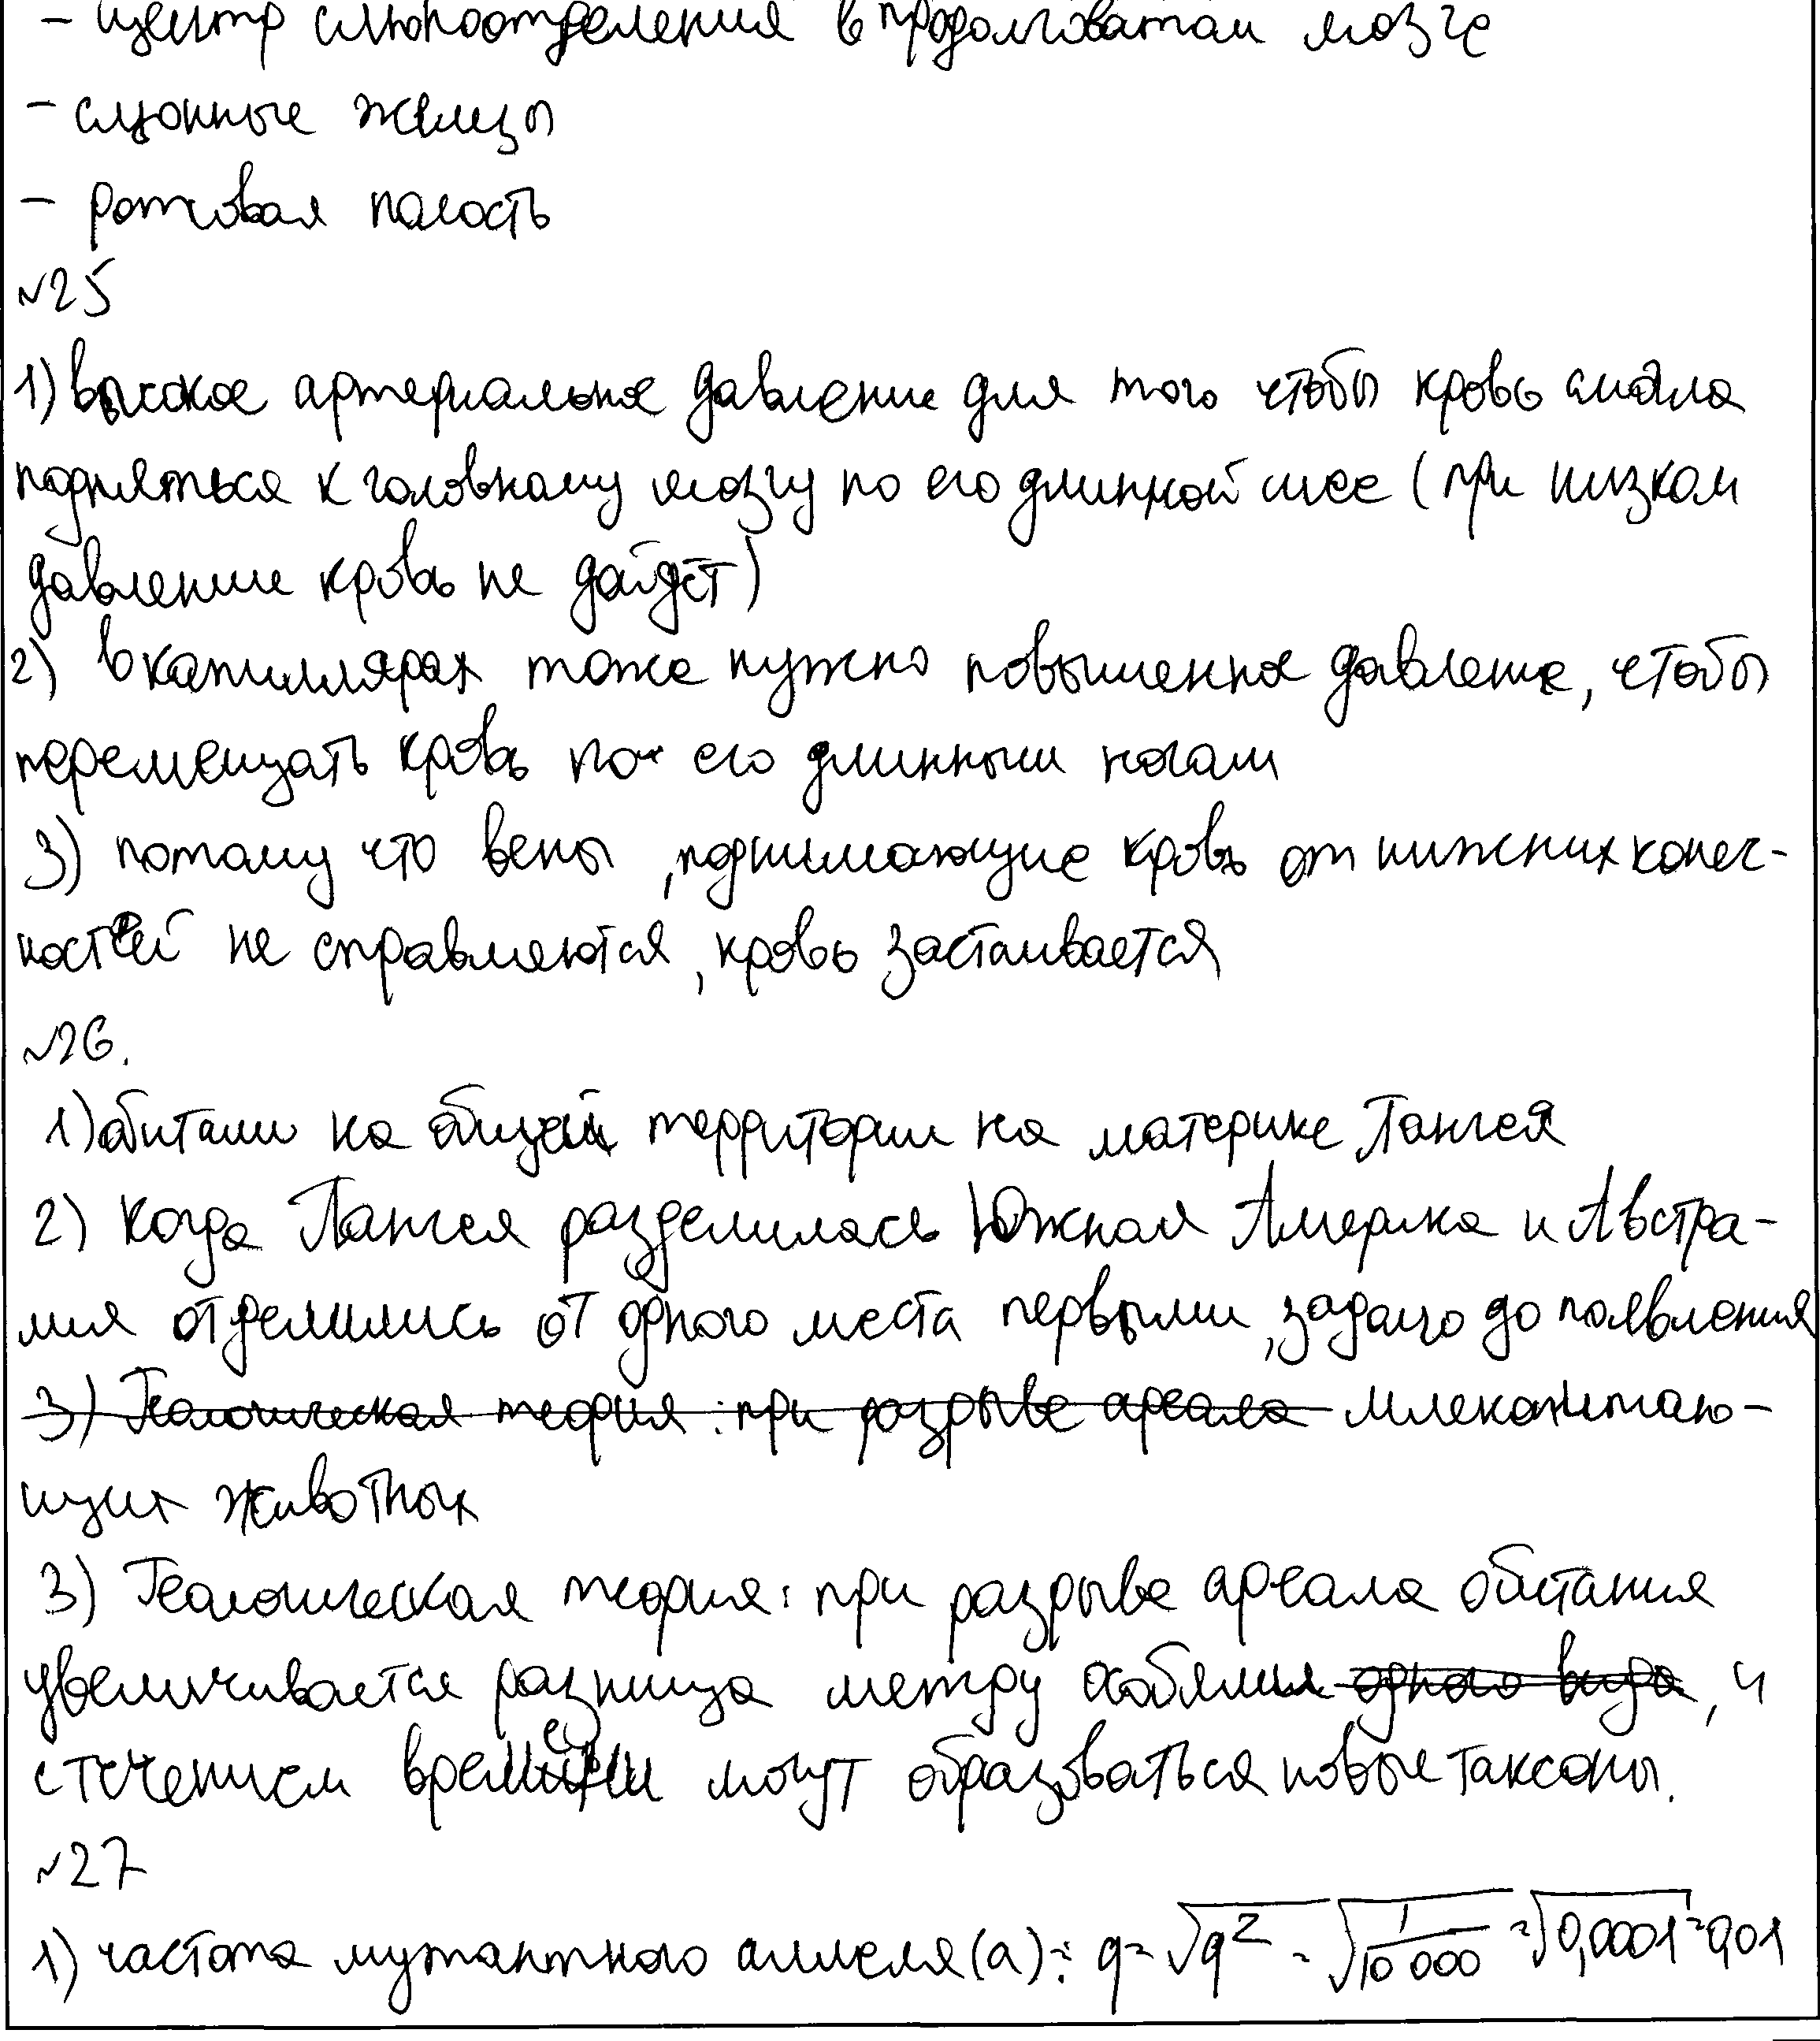 - центр слюноотделения в продолговатом мозге
- слюнные железы
- ротовая полость
№25
1) высокое артериальное давление для того чтобы кровь смогла
подняться к головному мозгу по его длинной шее (при низком
давлении кровь не дойдёт)
2) в капиллярах тоже нужно повышенное давление, чтобы
перемещать кровь по его длинным ногам
3) потому что вены, поднимающие кровь от нижних конеч-
ностей не справляются, кровь застаивается
№26.
1) обитали на общей территории на материке Пангея
2) когда Пангея разделилась Южная Америка и Австра-
лия отделились от одного места первыми, задолго до появления
3) Геологическая теория: при разрыве ареала млекопитаю-
щих животных
3) Геологическая теория: при разрыве ареала обитания
увеличивается разница между особями одного вида, и
с течением времени могут образоваться новые таксоны.
№27
1) частота мутантного аллеля (a): q=√q² = √1/10 000 = √0,0001 = 0,01